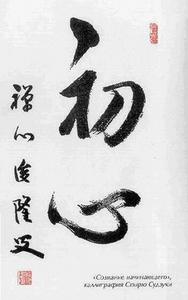 初心
禪心俊隆
«Сознание начинающего»,
каллиграфия Судзуки